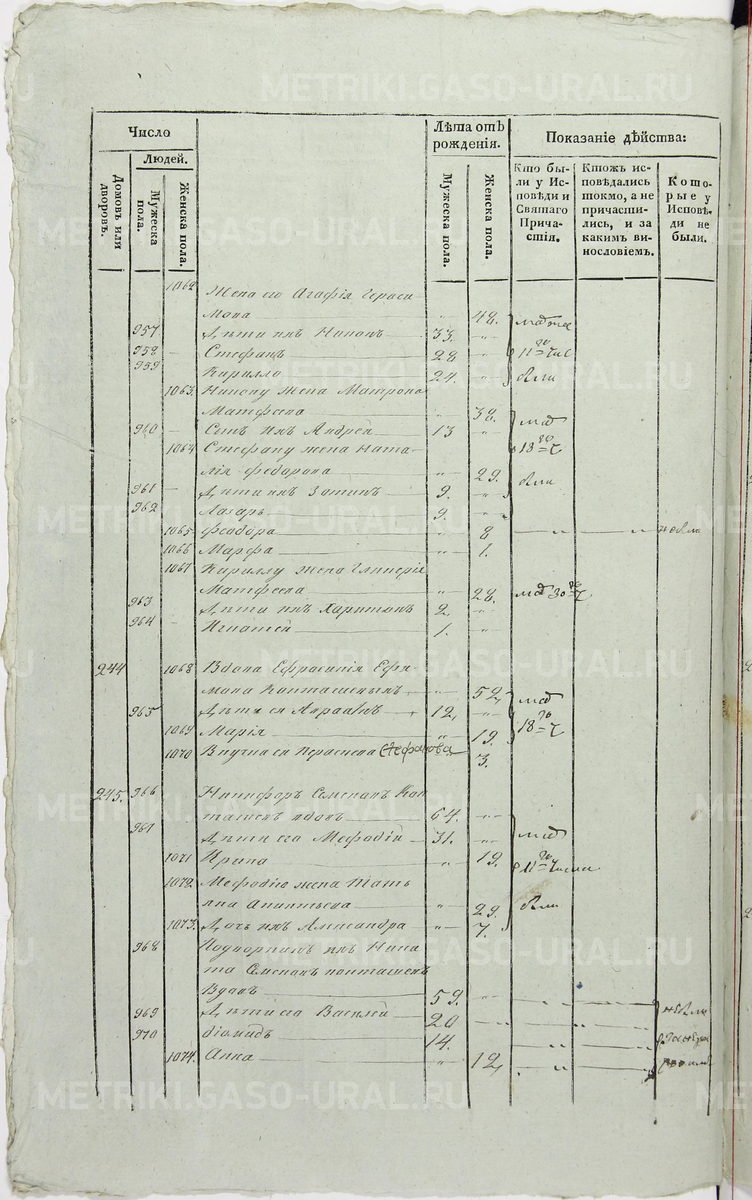 Число
Лѣта отъ рождения.
Показанiе дѣйства:
Людей.
Домовъ или дворовъ.
Мужеска пола.
Женска пола.
Мужеска пола.
Женска пола.
Кто были у Исповѣди и Святаго Причастiя.
Ктожъ исповѣдались токмо, а не причастились, и за какимъ винословiемъ.
Которые у Исповѣди не были.
1062 Жена его Агафiя Гераси
мова 48.
957 Дѣти ихъ Никонъ 33.
958 Стефанъ 28
959 Кирилло 24.
были
1063. Никону жена Матрона
Матфеева 38.
960 Сынъ ихъ Андрей 13
1064 Стефану жена Ната
лiя Федорова 29.
были
961 Дѣти ихъ Зотикъ 9.
962 Лазарь 9.
1065 Феодора 8
1066 Марфа 1.
1067 Кириллу жена Гликерiя
Матфеева 28.
963 Дѣти ихъ Харитонъ 2.
964 Игнатей 1.
244 1068 Вдова Ефросинiя Ефи
мова 52,
965 Дѣти ея Авраамъ 12,
1069 Марiя 19.
1070 Внучка ея Стефанова 3.
245. 966 Никифоръ Семеновъ Кон
ташевъ вдовъ 64.
967 Дѣти его Мефодiй 31.
1071 Ирина 19.
1072. Мефодiю жена Татъ
яна 29.
были
1073. Дочь ихъ Александра 7.
968 Подворникъ ихъ Ники
та Семеновъ Конташевъ
Вдовъ 59.
969 Дѣти его Василей 20
970 Дiомидъ 14.
1074. Анна 12,
METRIKI.GASO-URAL.RU